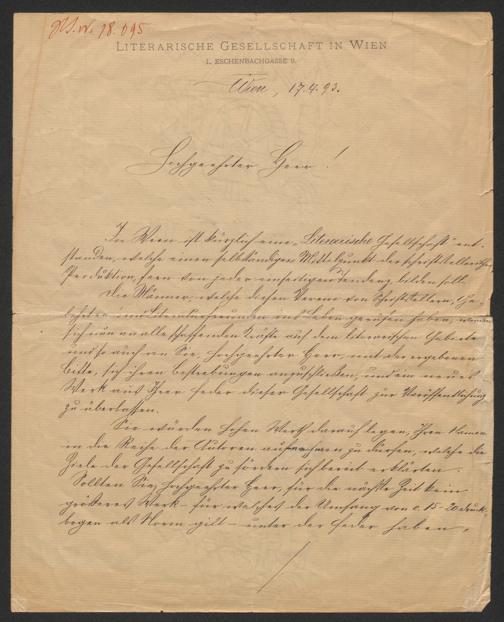 LITERARISCHE GESELLSCHAFT IN WIEN
I. ESCHENBACHGASSE 9.
Wien, 17.4.93.
Hochgeehrter Herr!
In Wien ist kürzlich eine „Literarische Gesellschaft“ ent-
standen, welche einen selbständigen Mittelpunkt der schriftstellerischen
Production, fern von jeder einseitigen Tendenz, bilden soll.
Die Männer, welche diesen Verein von Schriftstellern, Ge-
lehrten und Literaturfreunden ins Leben gerufen haben, wenden
sich nun an alle schaffenden Kräfte auf dem literarischen Gebiete
und so auch an Sie, hochgeehrter Herr, mit der ergebenen
Bitte, sich ihren Bestrebungen anzuschließen, und ein neues
Werk aus Ihrer Feder dieser Gesellschaft zur Veröffentlichung
zu überlassen.
Sie würden hohen Werth darauf legen, Ihren Namen
in die Reihe der Autoren aufnehmen zu dürfen, welche die
Ziele der Gesellschaft zu fördern sich bereit erklärten.
Sollten Sie, hochgeehrter Herr, für die nächste Zeit kein
größeres Werk – für welches der Umfang von c. 15-20 Druck-
bogen als Norm gilt – unter der Feder haben,